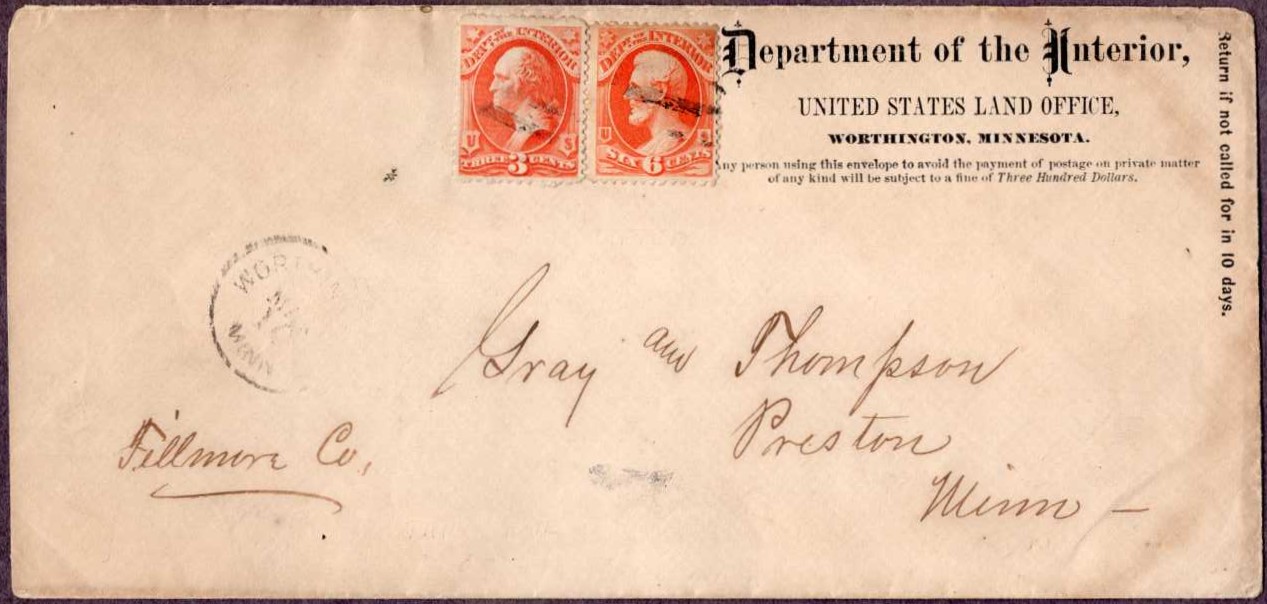 DEPT. OF THE INTERIOR
U S
THREE 3 CENTS
DEPT. OF THE INTERIOR
U S
SIX 6 CENTS
Department of the Interior,
UNITED STATES LAND OFFICE,
WORTHINGTON, MINNESOTA.
ny person using this envelope to avoid the payment of postage on private matter
of any kind will be subject to a fine of Three Hundred Dollars.
Return if not called for in 10 days.
MINN
Gray and Thompson
Preston
Minn —
Fillmore Co,